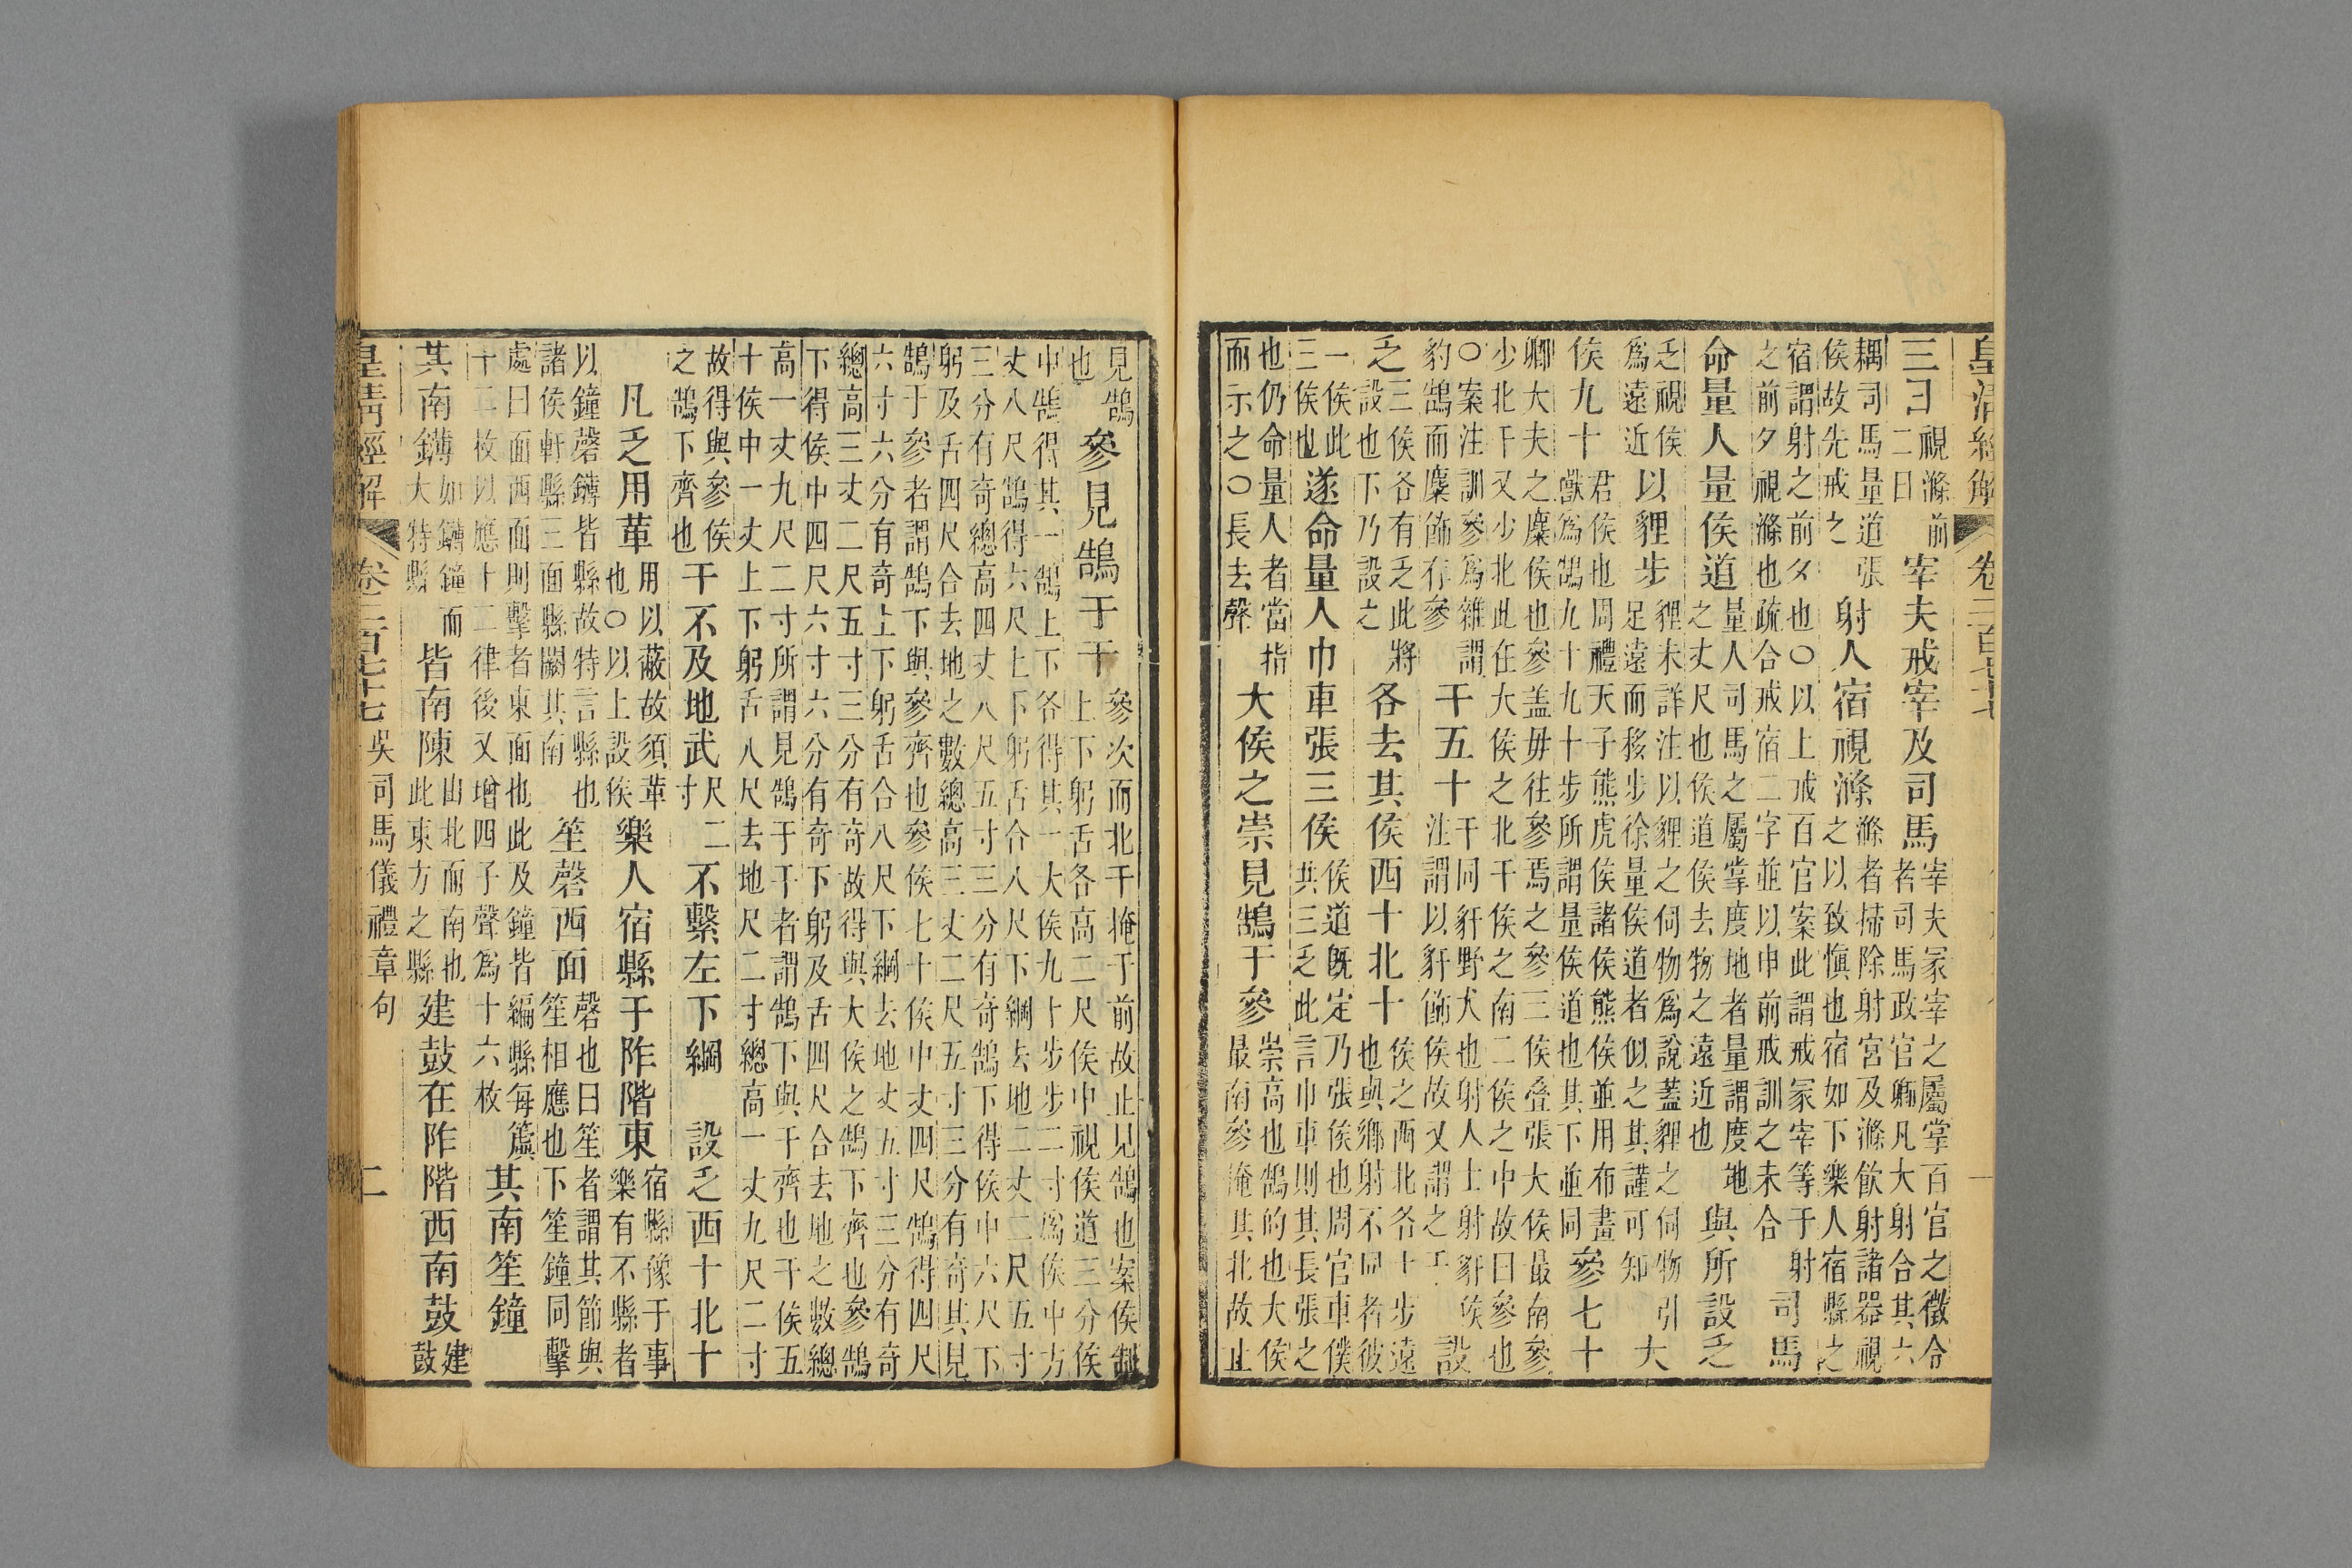 皇清經解　卷二百七十七
三日視滌前二日宰夫戒宰及司馬宰夫冢宰之屬掌百官之徵合者司馬政官卿凡大射合其六
耦司馬量道張侯故先戒之射人宿視滌滌者掃除射宮及滌飲射諸器視之以致慎也宿如下樂人宿縣之
宿謂射之前夕也○以上戒百官案此謂戒冢宰等于射之前夕視滌也疏合戒宿二字並以申前戒訓之未合司馬
命量人量侯道量人司馬之屬掌度地者量謂度地之丈尺也侯道侯去物之遠近也與所設乏
乏視侯爲遠近以貍步貍未詳注以貍之伺物爲說蓋貍之伺物引足遠而移步徐量侯道者似之其謹可知大
侯九十君侯也周禮天子熊虎侯諸侯熊侯並用布畫獸爲鵠九十九十步所謂量侯道也其下並同參七十
卿大夫之麋侯也參盖毋往參焉之參三侯叠張大侯最南參少北干又少北此在大侯之北干侯之南二侯之中故曰參也
○案注訓參爲雜謂豹鵠而麋飾存參干五十干同豻野犬也射人士射豻侯注謂以豻飾侯故又謂之干設
乏三侯各有乏此將設也下乃設之各去其侯西十北十侯之西北各十步遠也與鄉射不同者彼
一侯此三侯也遂命量人巾車張三侯侯道既定乃張侯也周官車僕共三乏此言巾車則其長張之
也仍命量人者當指而示之○長去聲大侯之崇見鵠于參崇高也鵠的也大侯最南參俺其北故止
見鵠也參見鵠于干參次而北干掩于前故止見鵠也案侯制上下躬舌各高二尺侯中視侯道三分侯
中鵠得其一鵠上下各得其一大侯九十步步二寸爲侯中方丈八尺鵠得六尺上下躬舌合八尺下綱去地二丈二尺五寸
三分有奇總高四丈八尺五寸三分有奇鵠下得侯中六尺下躬及舌四尺合去地之數總高三丈二尺五寸三分有奇其見
鵠于參者謂鵠下與參齊也參侯七十侯中丈四尺鵠得四尺六寸六分有奇上下躬舌合八尺下綱去地丈五寸三分有奇
總高三丈二尺五寸三分有奇故得與大侯之鵠下齊也參鵠下得侯中四尺六寸六分有奇下躬及舌四尺合去地之數總
高一丈九尺二寸所謂見鵠于干者謂鵠下與干齊也干侯五十侯中一丈上下躬舌八尺去地尺二寸總高一丈九尺二寸
故得與參侯之鵠下齊也干不及地武尺二寸不繫左下綱　設乏西十北十
凡乏用革用以蔽故須革也○以上設侯樂人宿縣于阼階東宿縣豫于事樂有不縣者
以鐘磬鑮皆縣故特言縣也諸侯軒縣三面縣闕其南笙磬西面磬也曰笙者謂其節與笙相應也下笙鐘同擊
處曰面西面則擊者東面也此及鐘皆編縣每簴十二枚以應十二律後又增四子聲爲十六枚其南笙鐘
其南鑮如鐘而大特縣皆南陳由北而南也此東方之縣建鼓在阼階西南鼓建鼓
皇清經解　卷二百七十七　吳司馬儀禮章句　二